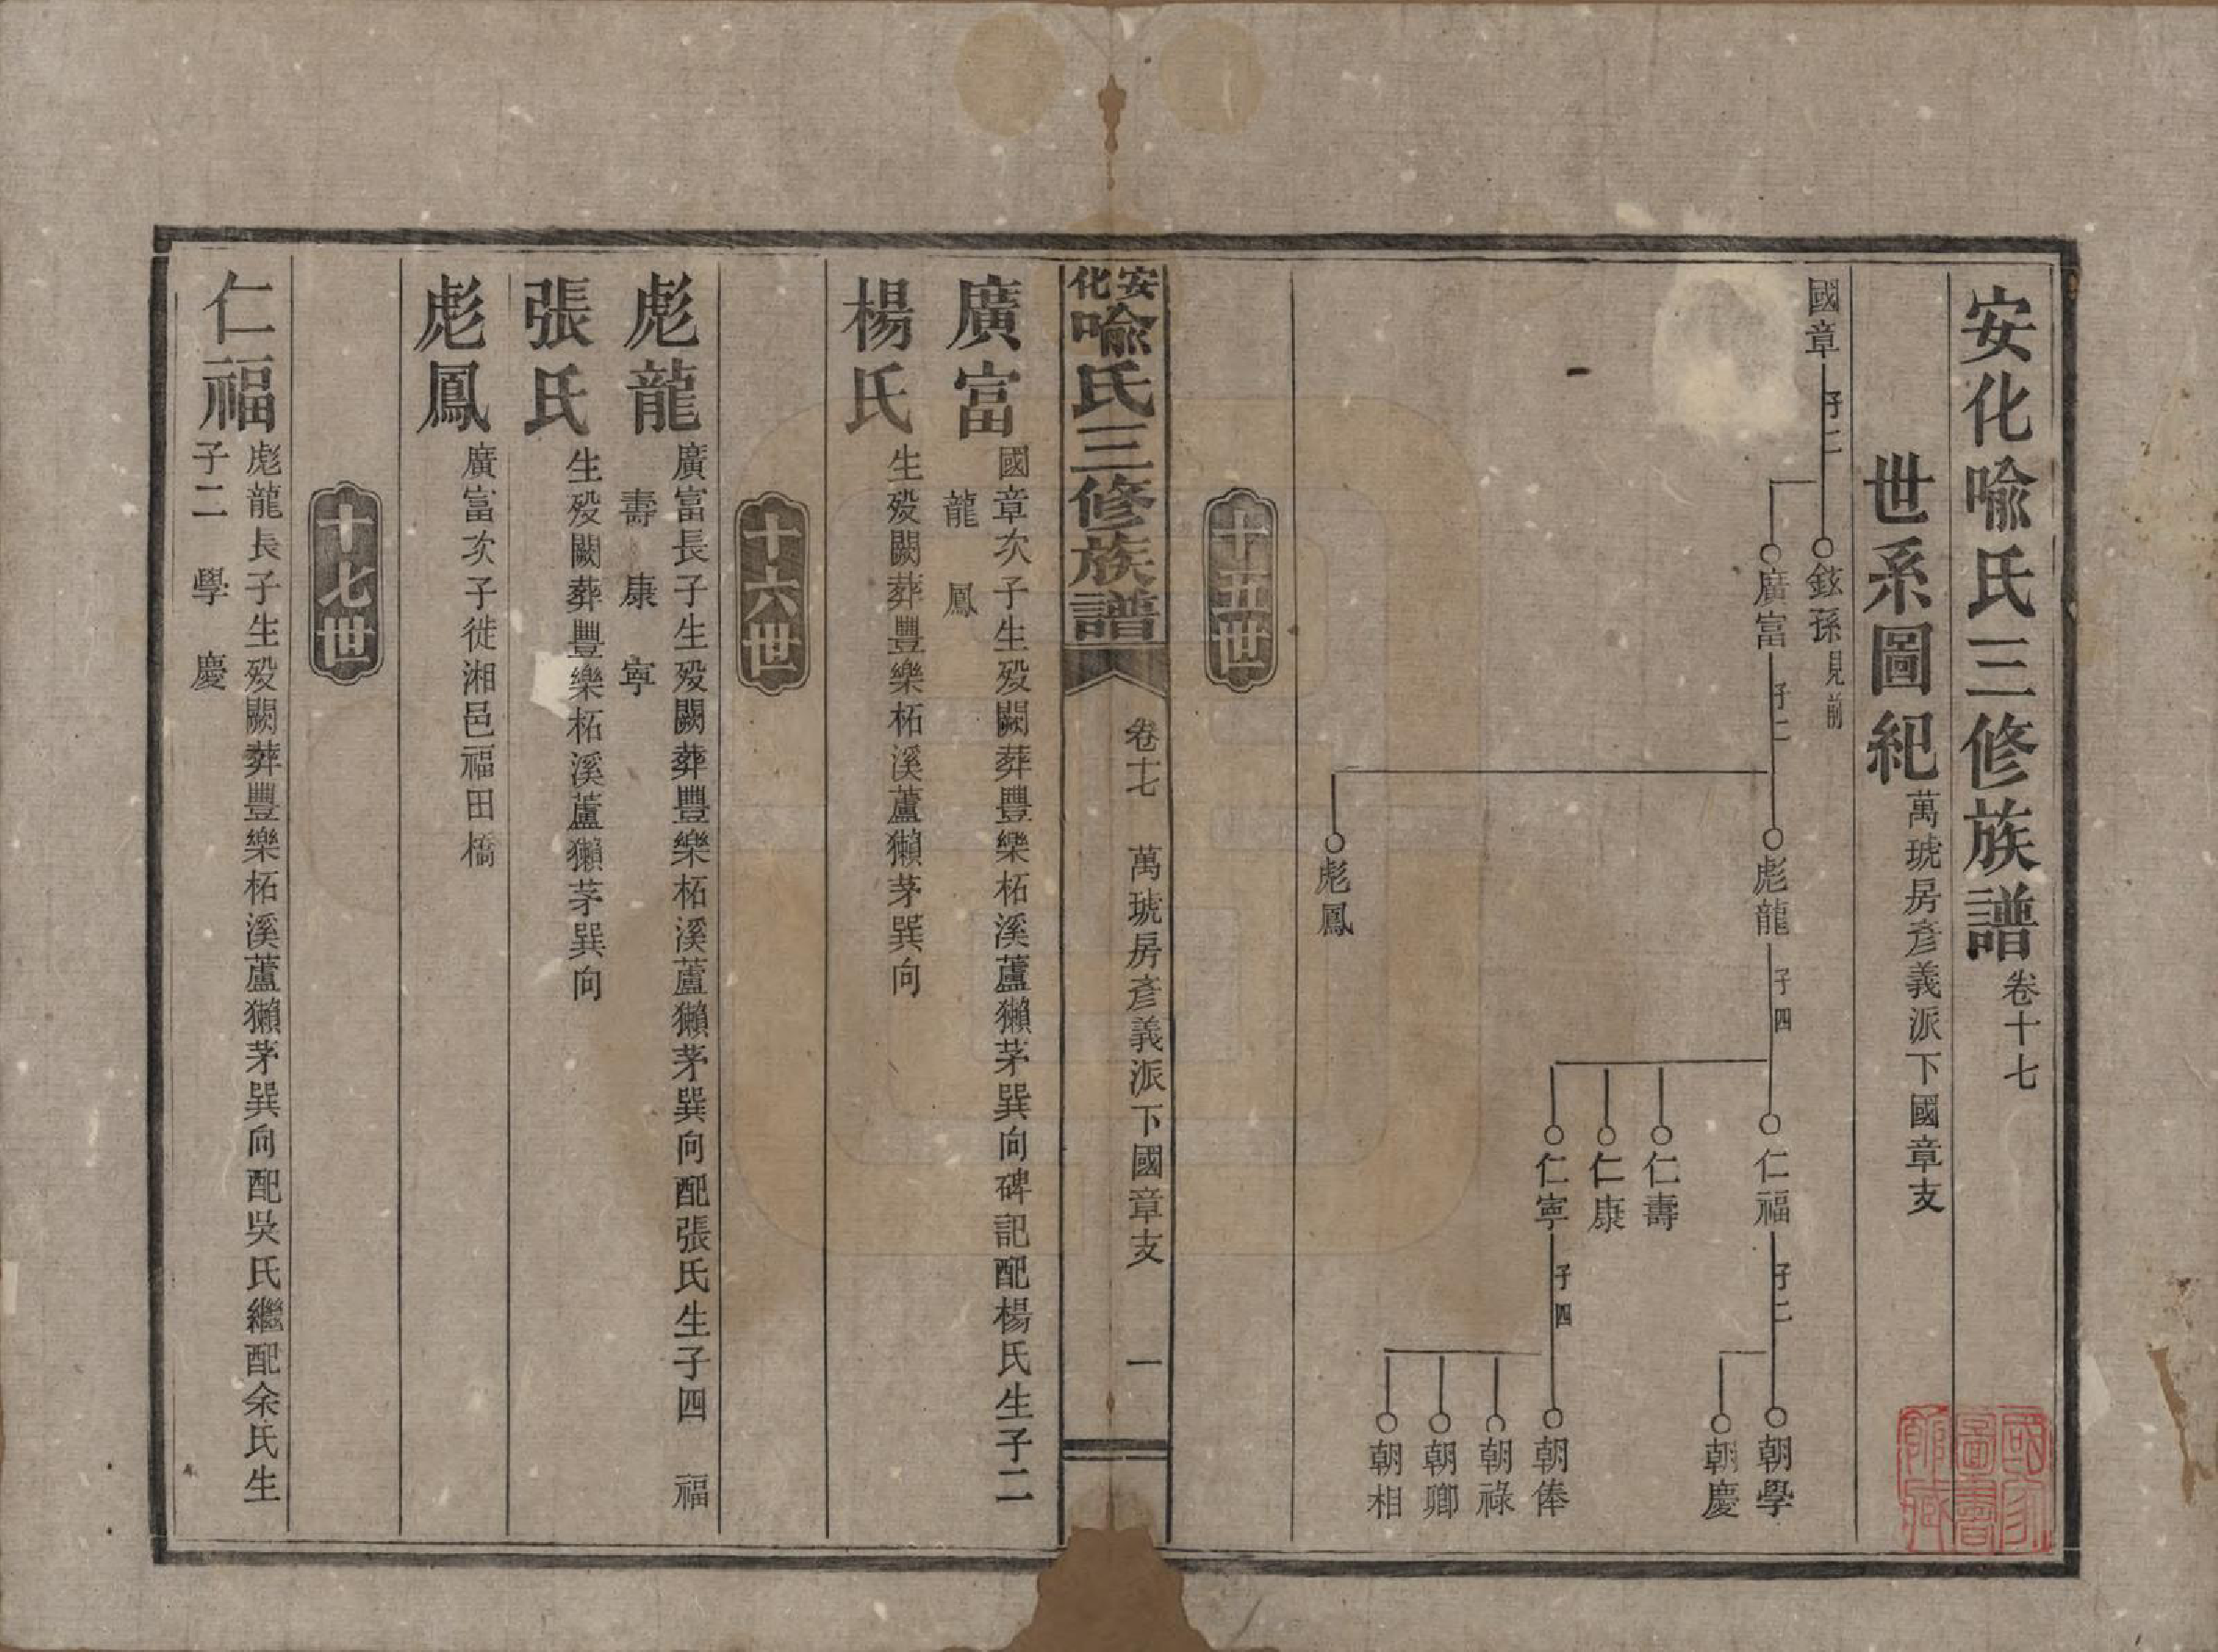 安化喩氏三修族譜卷十七
世系圖紀萬琥房彥義派下國章支
國章
子二
鉉孫見前
廣富
子二
彪龍
子四
仁福
子二
朝學
朝慶
仁壽
仁康
仁寧
子四
朝俸
朝祿
朝卿
朝相
彪鳳
十五世
安化喩氏三修族譜
卷十七
萬琥房彥義派下國章支
一
廣富
國章次子生殁闕葬豐樂柘溪蘆獺茅巽向碑記配楊氏生子二
龍鳳
楊氏
生殁闕葬豐樂柘溪蘆獺茅巽向
十六世
彪龍
廣富長子生殁闕葬豐樂柘溪蘆獺茅巽向配張氏生子四福
壽康寧
張氏
生殁闕葬豐樂柘溪蘆獺茅巽向
彪鳳
廣富次子徙湘邑福田橋
十七世
仁福
彪龍長子生殁闕葬豐樂柘溪蘆獺茅巽向配吳氏繼配余氏生
子二學慶
國家圖書館藏